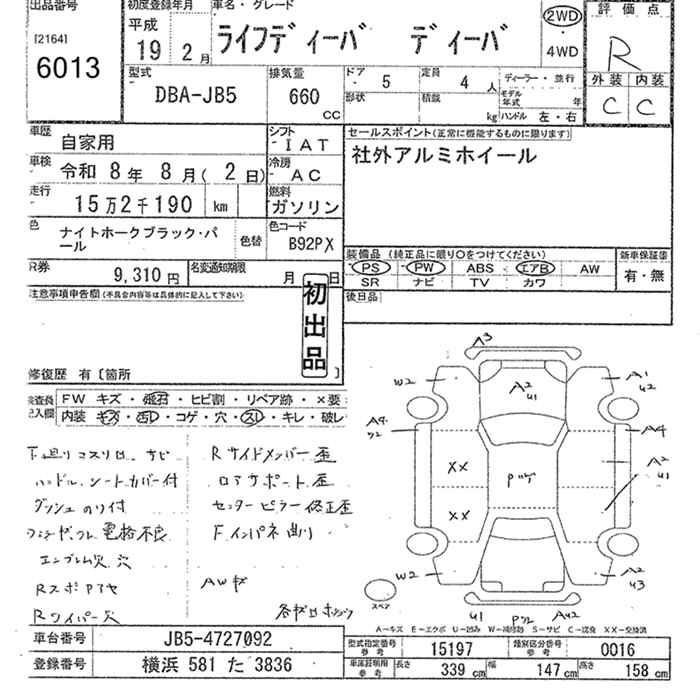 出品番号
[2164]
6013
初度登録年月
平成
19 2 月
車名・グレード
ライフディーバ ディーバ
2WD
・
4WD
評価点
R
外装 内装
C C
型式
DBA-JB5
排気量
660
CC
ドア
5
定員
4 人
形状
積載
kg
ディーラー・並行
モデル年式 年
ハンドル 左・右
車歴
自家用
シフト
IAT
セールスポイント(正常に機能するものに限ります)
社外アルミホイール
車検
令和 8 年 8 月( 2 日)
冷房
AC
走行
15万2千190 km
燃料
ガソリン
色
ナイトホークブラック・パール
色替
色コード
B92PX
装備品 (純正品に限り○をつけてください)
PS ・PW ABS エアB AW
SR ナビ TV カワ
新車保証書
有・無
R券
9,310 円
名変通知期限
月 日
後日品
注意事項申告欄(不具合内容等は具体的に記入して下さい)
初出品
修復歴 有〔箇所 〕
検査員記入欄
FW キズ・飛石・ヒビ割・リペア跡・×要
内装 キズ・汚レ・コゲ・穴・スレ・キレ・破レ
下廻りコスリ サビ
ハンドル、シートカバー付
ダッシュ のり付
電格不良
エンブレム欠 穴
Rワイパー欠
Rサイドメンバー 歪
ロアサポート 歪
センターピラー 修正歪
Fインパネ 曲り
AWキズ
A3
W2
A1
U2
A2
U1
A4
A4
A2
U1
XX
XX
W2
A2
U3
U1
スペア
A-キズ E-エクボ U-凹み W-補修跡 S-サビ C-腐食 XX-交換済
車台番号
JB5-4727092
登録番号
横浜 581 た 3836
型式指定番号
参考
15197
類別区分番号
参考
0016
車庫証明用
参考
長さ
339 cm
幅
147 cm
高さ
158 cm